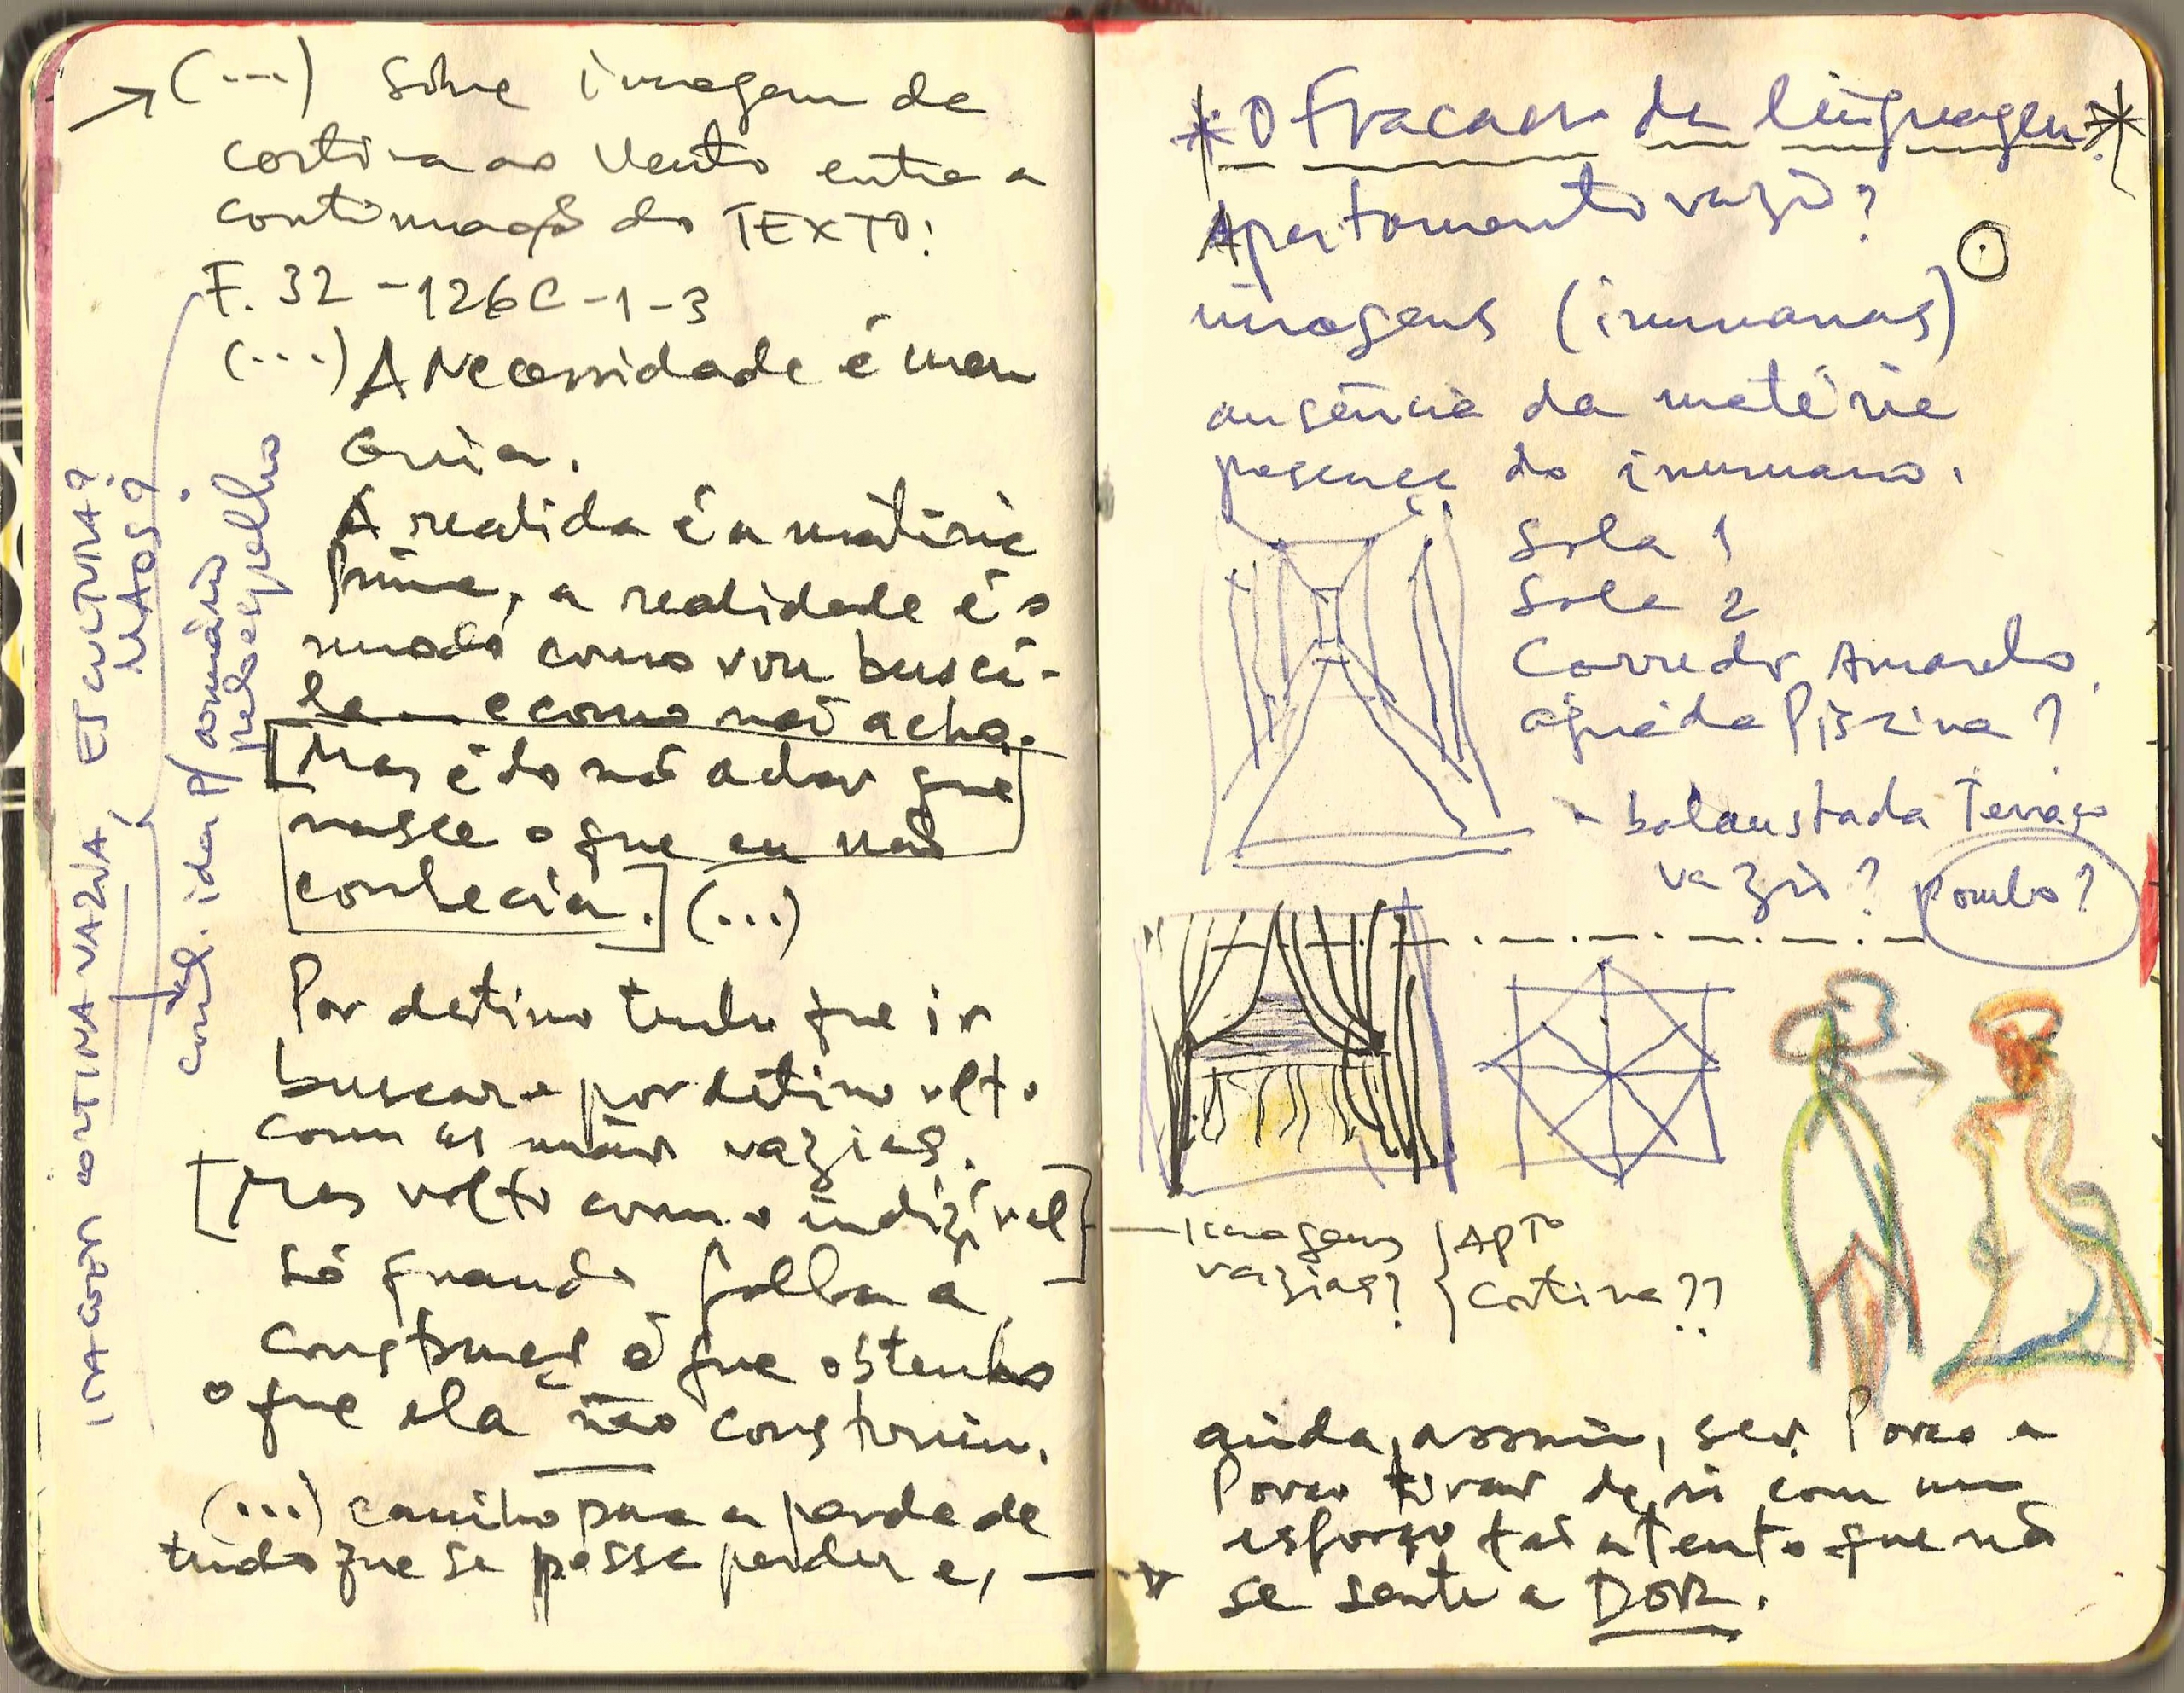 → (...) sobre imagem da
cortina ao vento entre a
continuação do TEXTO:
F. 32 - 126C - 1 - 3
(...) A Necessidade é meu
Guia.
A realida é a matéria
prima, a realidade é o
modo como vou buscá-
la – e como não acho.
[Mas é do não achar que
nasce o que eu não
conhecia.] (...)
Por destino tenho que ir
buscar e por destino volto
com as mãos vazias.
[Mas volto com o indizível]
Só quando falha a
construção é que obtenho
o que ela não construiu.
(...) caminho para a perda de
tudo que se possa perder e, —
IMAGEM CORTINA VAZIA, ESCULTURA?
MÃOS?
cont. ida p/ armário
pelo espelho
* O Fracasso da linguagem *
Apartamento vazio?
imagens (inumanas)
ausência da matéria
presença do inumano.
Sala 1
Sala 2
Corredor Amarelo
água da Piscina?
- balaustada Terraço
vazio? Pombo?
— Imagens
vazias?
Apto
Cortina??
ainda, assim, ser. Pouco a
Pouco tirar de si com um
esforço tão atento que não
se sente a DOR.